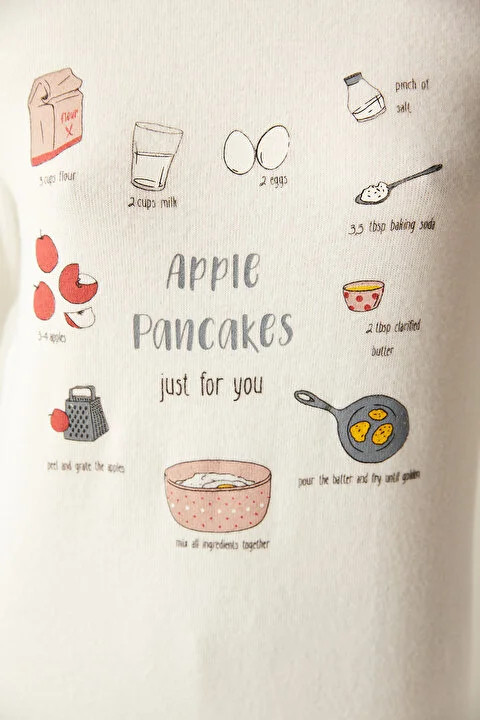 pinch of
salt
flour
X
3 cups flour
2 cups milk
2 eggs
3,5 tbsp baking soda
3-4 apples
APPLE
PANCAKES
just for you
2 tbsp clarified
butter
peel and grate the apples
pour the batter and fry until golden
mix all ingredients together